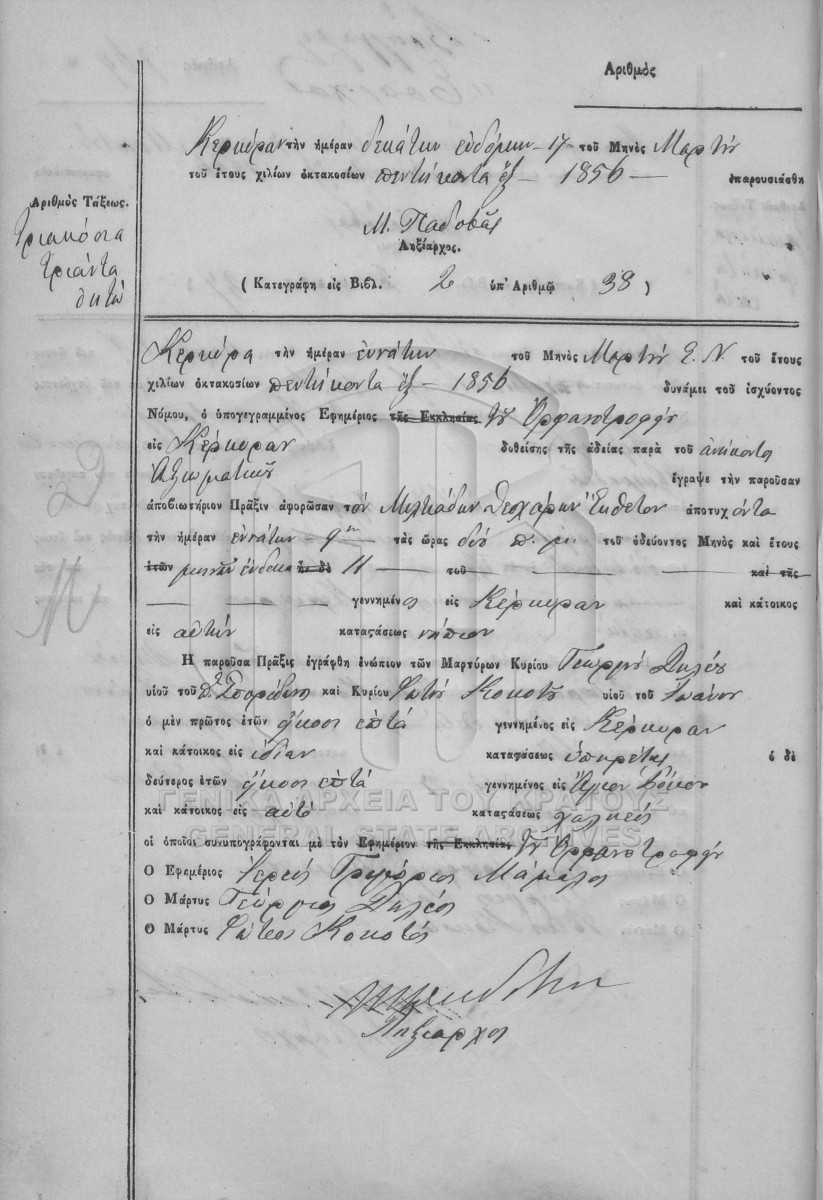 Αριθμός
Κερκύραν τὴν ἡμέραν δεκάτην ἑυδόμην – 17 – τοῦ Μηνὸς Μαρτίου
τοῦ ἔτους χιλίων ὀκτακοσίων πεντήκοντα ἕξ – 1856 – ἐπαρουσιάσθη
Μ. Παδοβᾶς
Ληξίαρχος.
( Κατεγράφη εἰς Βιβλ. 2 ὑπ' Ἀριθμῷ 38 )
Ἀριθμὸς Τάξεως.
Τριακόσια
τριάντα
ὀκτὼ
Κέρκυρα τὴν ἡμέραν ἐννάτην τοῦ Μηνὸς Μαρτίου Ε. Ν. τοῦ ἔτους
χιλίων ὀκτακοσίων πεντήκοντα ἕξ – 1856 δυνάμει τοῦ ἰσχύοντος
Νόμου, ὁ ὑπογεγραμμένος Ἐφημέριος τῆς Ἐκκλησίας τοῦ Ὀρφανοτροφίου
εἰς Κέρκυραν δοθείσης τῆς ἀδείας παρὰ τοῦ ἀνήκοντος
Ἀξιωματικοῦ ἔγραψε τὴν παροῦσαν
ἀποβιωτήριον Πρᾶξιν ἀφορῶσαν τὸν Μιλτιάδην Θεοχάρην Ἔκθετον ἀποτυχόντα
τὴν ἡμέραν ἐννάτην – 9ην τὰς ὥρας δύο π. μ. τοῦ ὁδεύοντος Μηνὸς καὶ ἔτους
ἐτῶν μηνῶν ἕνδεκα ἤν δὲ 11 — τοῦ — καὶ τῆς
γεννημένος εἰς Κέρκυραν καὶ κάτοικος
εἰς αὐτήν καταστάσεως νήπιον
Ἡ παροῦσα Πρᾶξις ἐγράφθη ἐνώπιον τῶν Μαρτύρων Κυρίου Γεωργίου
υἱοῦ τοῦ Σπυρίδωνος καὶ Κυρίου Φωτίου Κοκοτοῦ υἱοῦ τοῦ Ἰωάννου
ὁ μὲν πρῶτος ἐτῶν ἤκοσι ἑπτά γεννημένος εἰς Κέρκυραν
καὶ κάτοικος εἰς ἰδίαν καταστάσεως ὑπηρέτης ὁ δὲ
δεύτερος ἐτῶν ἤκοσι ἑπτά γεννημένος εἰς Ἅγιον
καὶ κάτοικος εἰς αὐτό καταστάσεως χαλκεύς
οἱ ὁποῖοι συνυπογράφονται μὲ τὸν Ἐφημέριον τῆς Ἐκκλησίας τοῦ Ὀρφανοτροφίου
Ὁ Ἐφημέριος Ἱερεύς Γρηγόριος Μάμαλος
Ὁ Μάρτυς Γεώργιος
Ὁ Μάρτυς Φώτιος Κοκοτός
Ληξίαρχος
ΓΕΝΙΚΑ ΑΡΧΕΙΑ ΤΟΥ ΚΡΑΤΟΥΣ
GENERAL STATE ARCHIVES